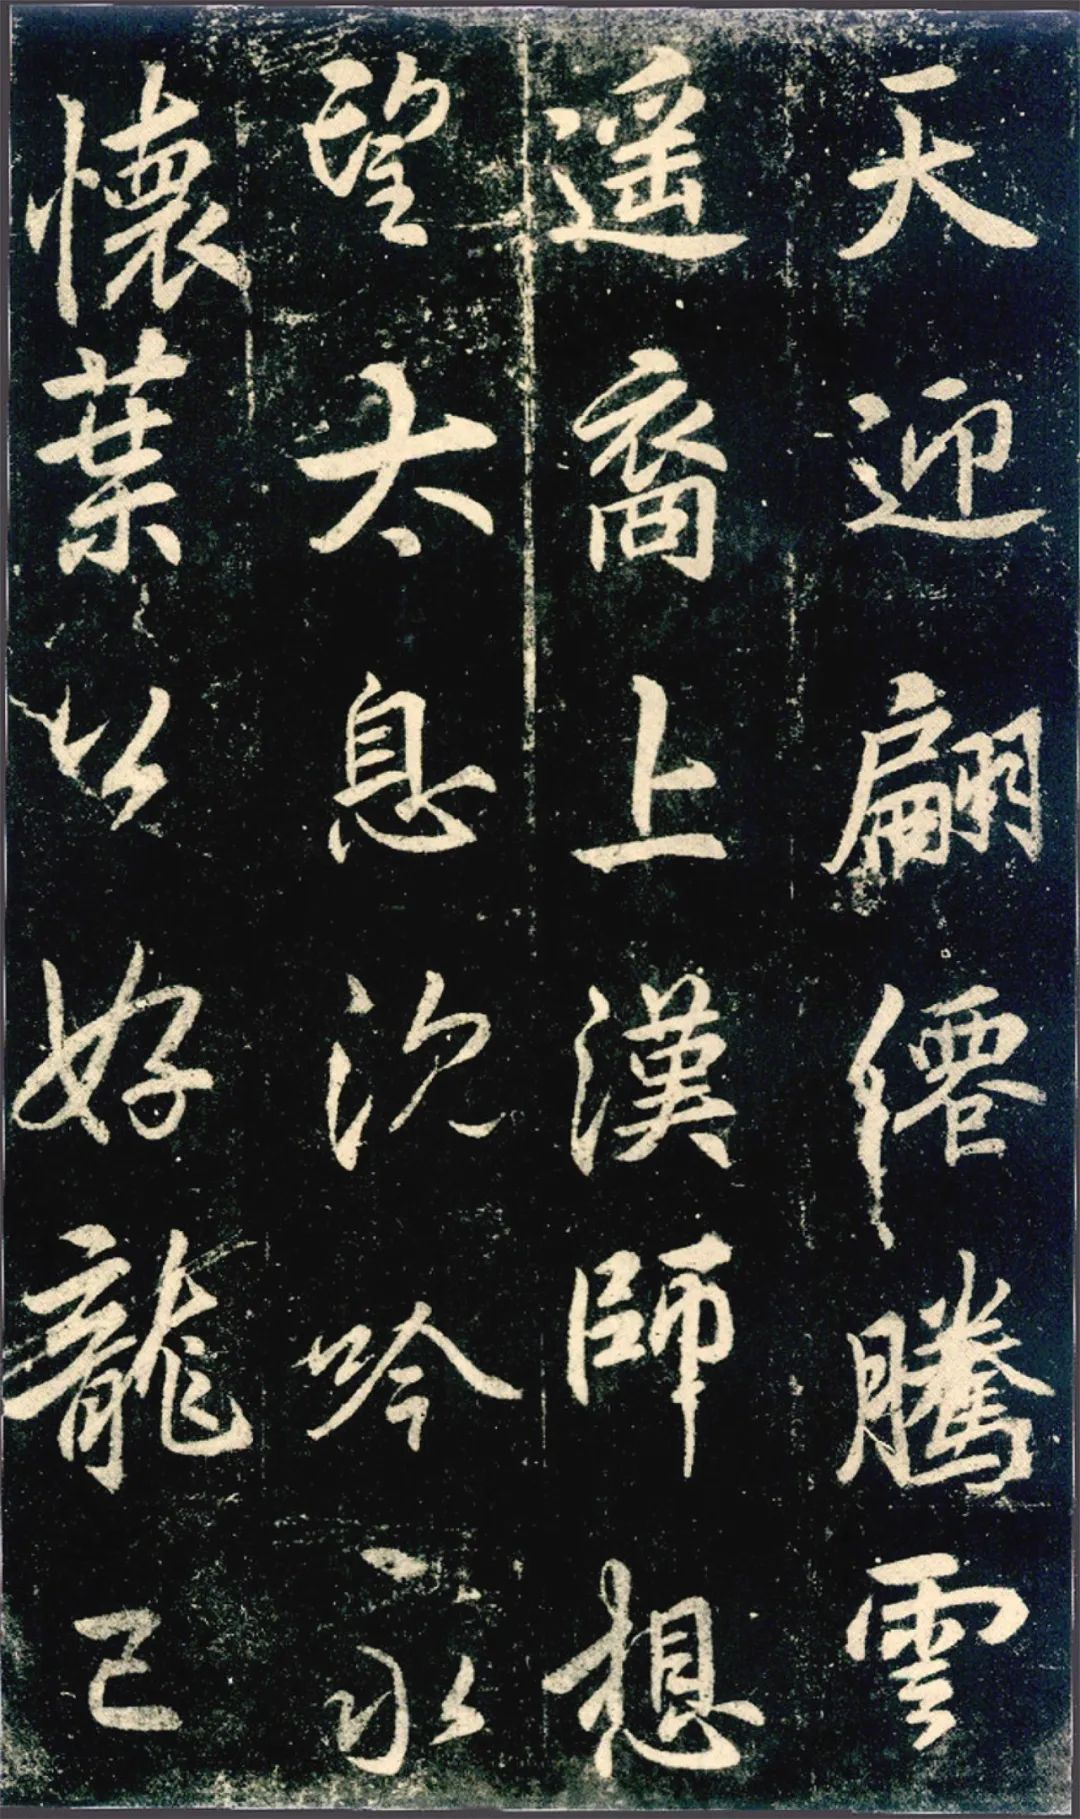 天迎翩繧騰雲
遥裔上漢師想
望太息沉吟永
懷葉以好龍已